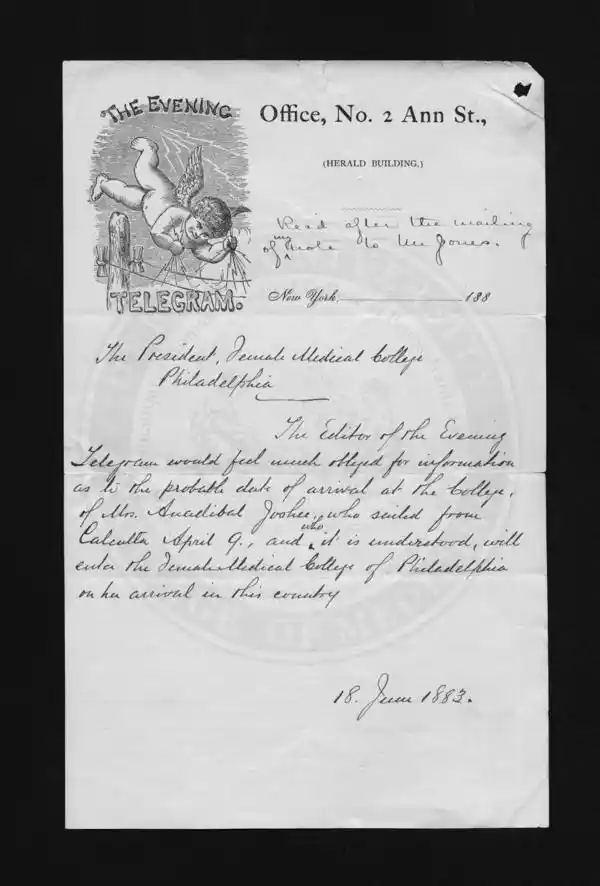 THE EVENING
TELEGRAM.
Office, No. 2 Ann St.,
(HERALD BUILDING,)
Read after the mailing
of my note to Mr Jones.
New York, 188
The President, Female Medical College
Philadelphia
The Editor of the Evening
Telegram would feel much obliged for information
as to the probable date of arrival at the College,
of Mrs. Anadibai Joshee, who sailed from
Calcutta April 9., and who it is understood, will
enter the Female Medical College of Philadelphia
on her arrival in this country
18. June 1883.